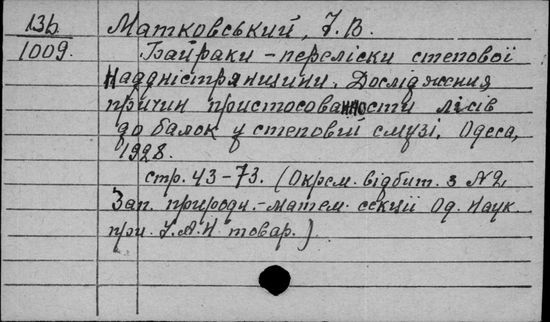 13b
Матковський, Т.В.
1009.
Байраки - переліски степової
Наддністрянщини. Дослідження
причин пристосованности лісів
до балок у степовій смузі. Одеса,
1928.
стр. 43-73. (Окрем. відбит. з №2
Зап. природн.-матем. секції Од. Наук
при. У.А.Н товар.)